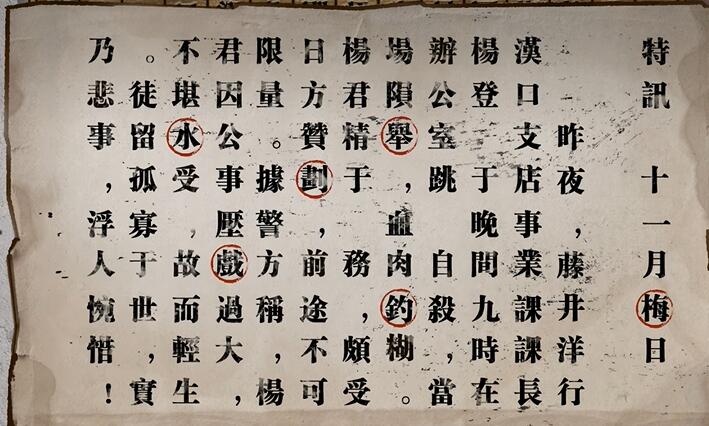 特訊 十一月梅日
昨夜，藤井洋行
漢口支店事業課課長
楊登 于晚間九時在
辦公室跳 自殺，當
場隕舉，血肉釣糊。
楊君精于 務，頗受
日方贊劃 前途，不可
限量。據警，方稱，楊
君因公事壓戲過大，
不堪水受，故而輕生
。徒留孤寡于世，實
乃悲事，浮人惋惜！